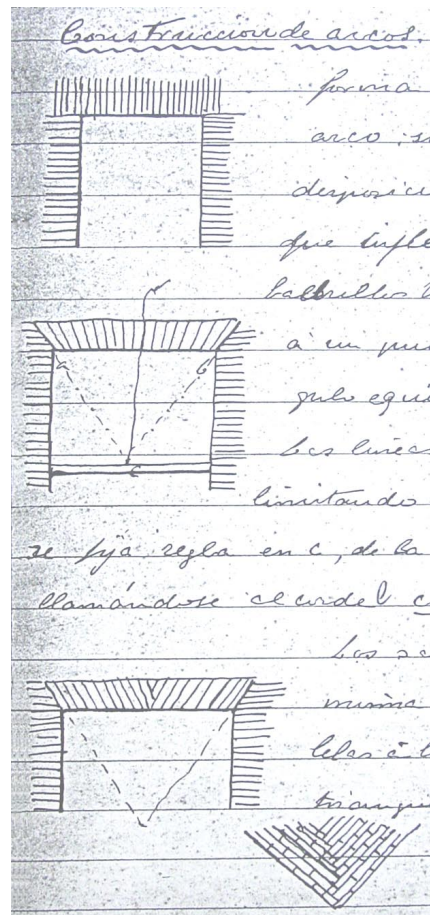 Construccion de arcos.
forma
arco.
disposici
que
ladrillos
a un pun
gulo equi
Las lineas
limitando
se fija regla en c, de la
llamándose el cordel c
Los
misma
lelas á l
triangu